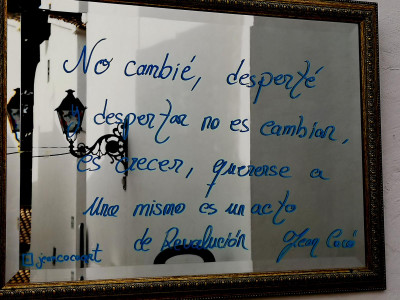 No cambié, desperté
y despertar no es cambiar,
es crecer, quererse a
una mismo es un acto
de Revolución Jean Cocó
jeancocoart